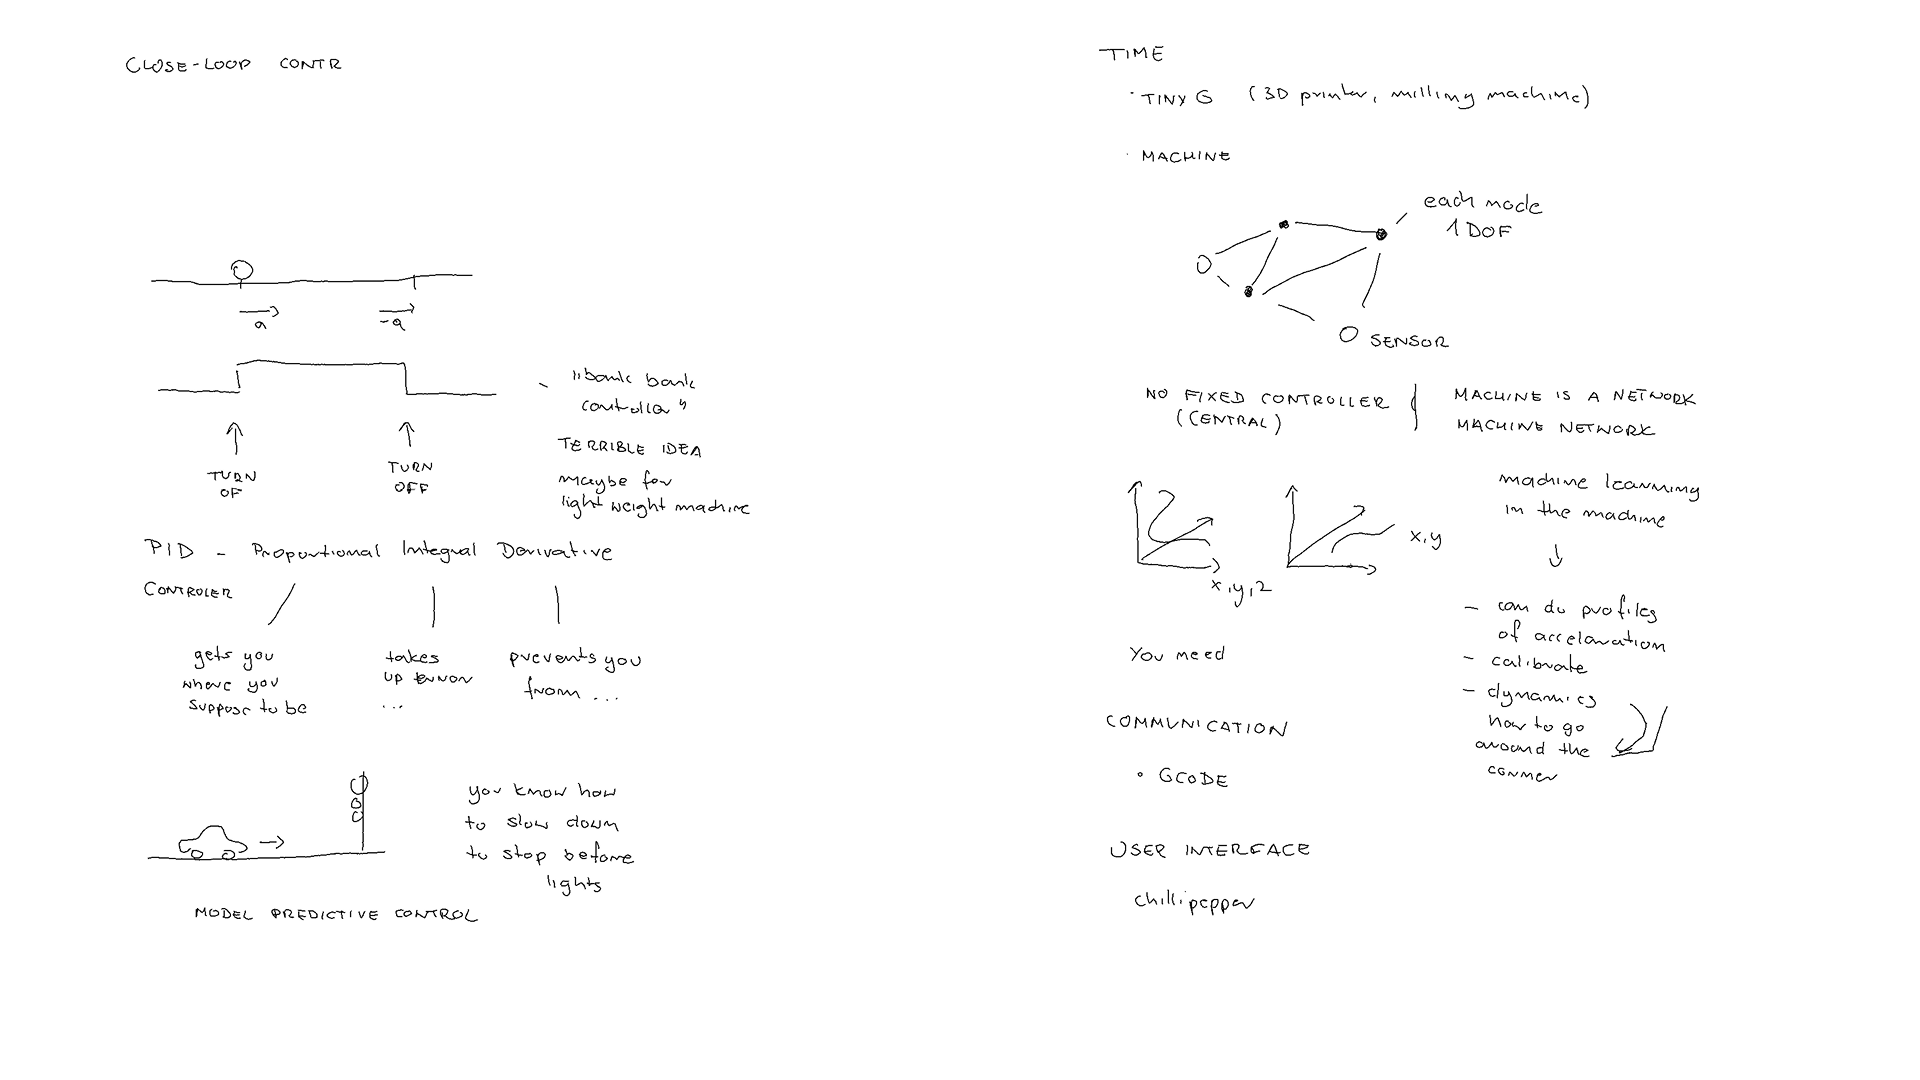 CLOSE-LOOP CONTR
a
-a
"bank bank
controller"
TURN
OF
TURN
OFF
TERRIBLE IDEA
maybe for
light weight machine
PID - Proportional Integral Derivative
CONTROLER
gets you
where you
suppose to be
takes
up error
...
prevents you
from ...
you know how
to slow down
to stop before
lights
MODEL PREDICTIVE CONTROL
TIME
· TINY G (3D printer, milling machine)
· MACHINE
each node
1 DOF
SENSOR
NO FIXED CONTROLLER
(CENTRAL)
MACHINE IS A NETWORK
MACHINE NETWORK
x,y,z
x,y
machine learning
in the machine
- can do profiles
of accelaration
- calibrate
- dynamics
how to go
around the
corner
You need
COMMUNICATION
• GCODE
USER INTERFACE
chillipepper